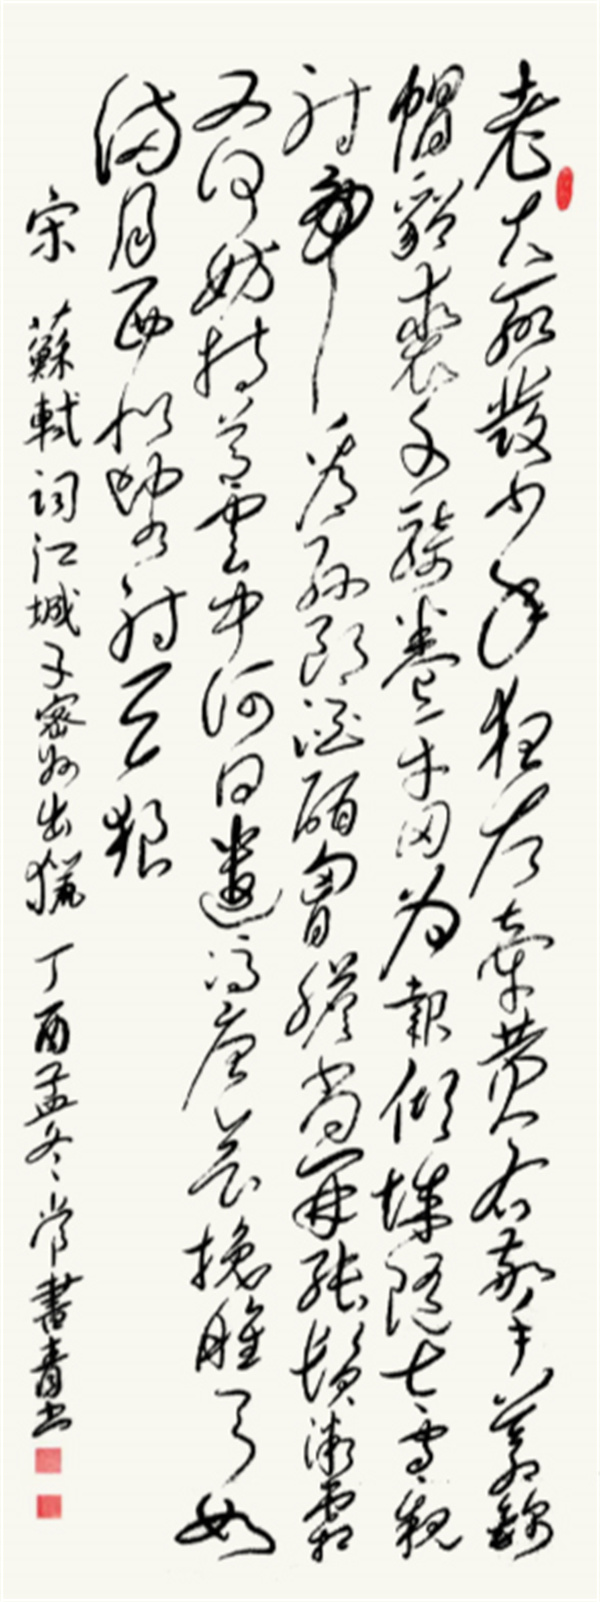 老夫聊發少年狂左牽黃右擎蒼錦
帽貂裘千騎卷平岡為報傾城隨太守親
射虎看孫郎酒酣胸膽尚開張鬢微霜
又何妨持節雲中何日遣馮唐會挽雕弓如
滿月西北望射天狼
宋 蘇軾詞江城子密州出獵 丁酉孟冬常書青书